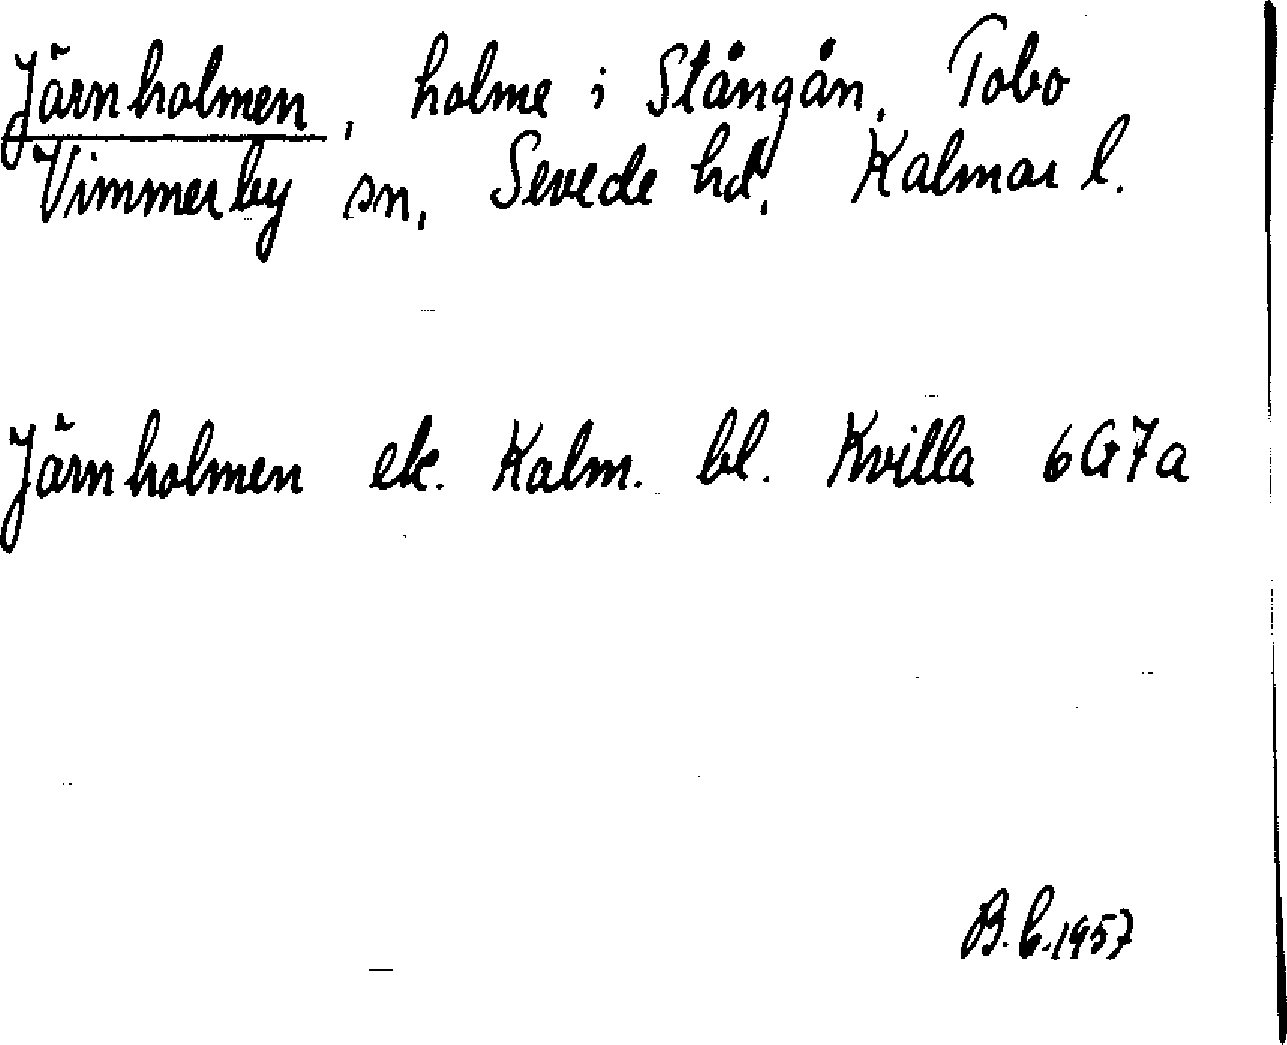 Järnholmen, holme i Stångån, Tobo
Vimmerby sn, Sevede hd, Kalmar l.
Järnholmen ek. Kalm. bl. Kvilla 6G7a
B.b.1957